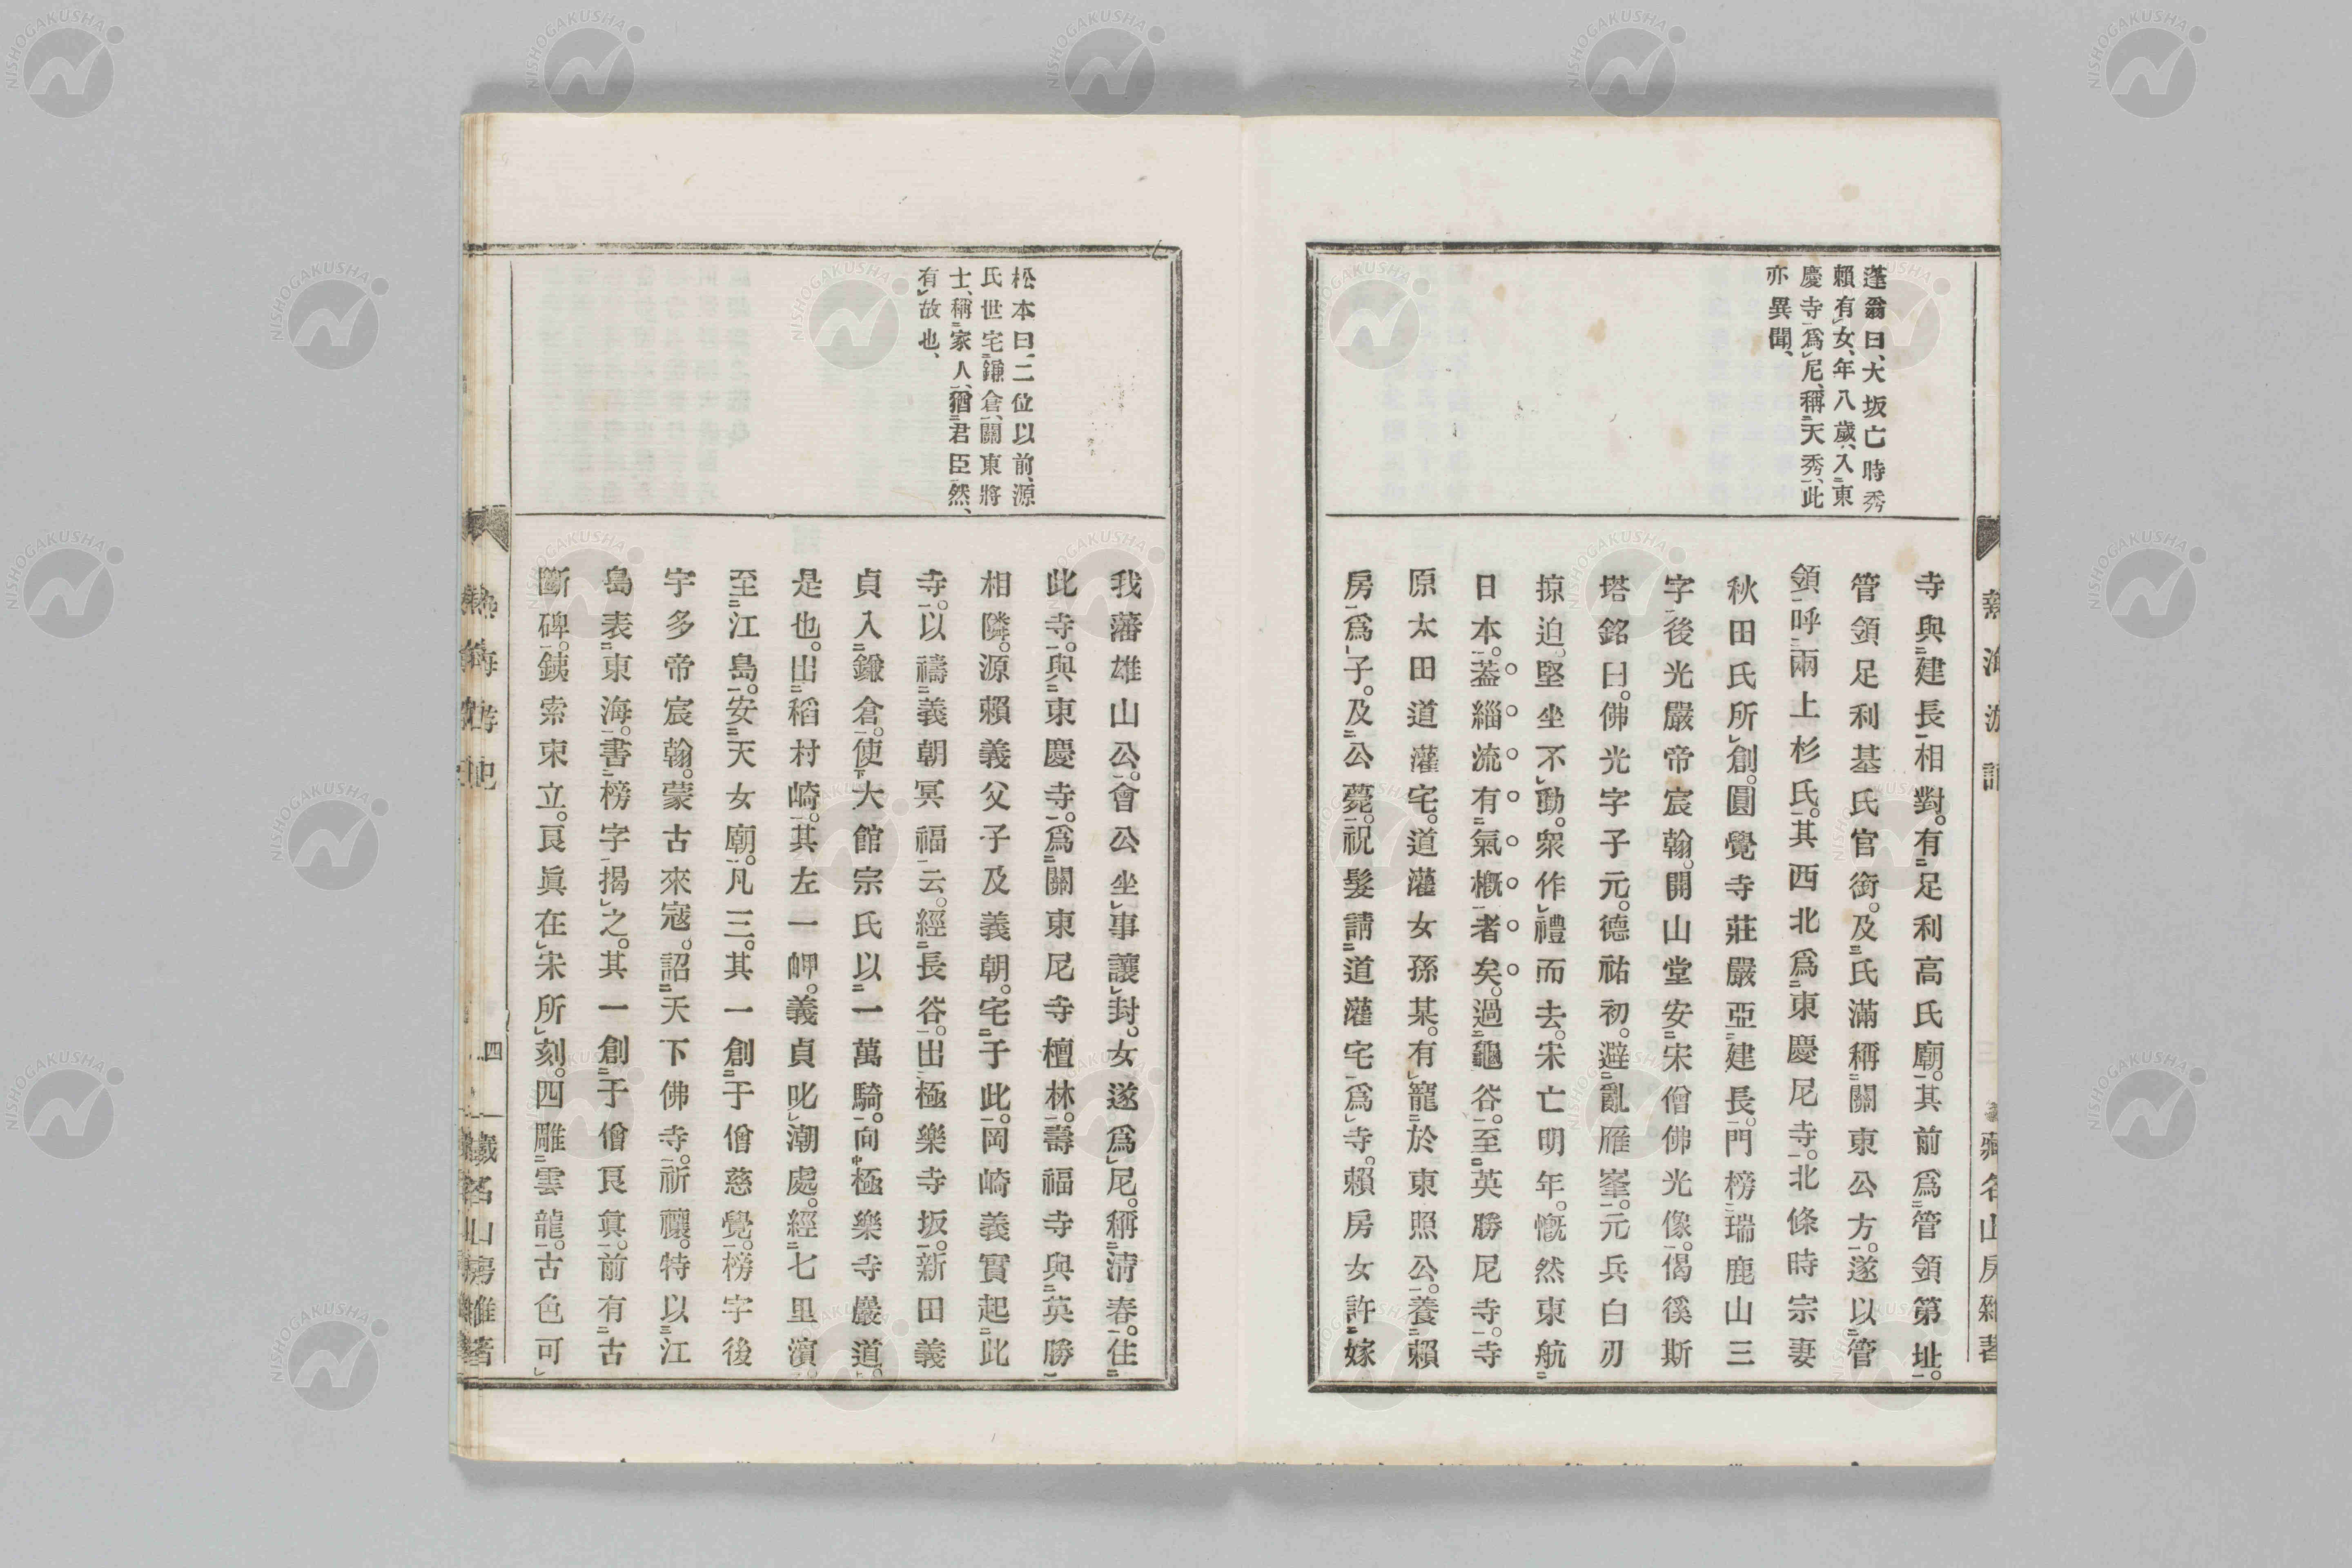 蓬翁曰、大坂亡時秀
賴有女、年八歲、入東
慶寺爲尼、稱天秀、此
亦異聞、
寺與建長相對。有足利高氏廟。其前爲管領第址。
管領足利基氏官銜。及氏滿稱關東公方。遂以管
領呼兩上杉氏。其西北爲東慶尼寺。北條時宗妻
秋田氏所創。圓覺寺莊嚴亞建長。門榜瑞鹿山三
字。後光嚴帝宸翰。開山堂安宋僧佛光像。偈徯斯
塔銘曰。佛光字子元。德祐初。避亂雁峯。元兵白刃
掠迫。堅坐不動。衆作禮而去。宋亡明年。慨然東航
日本。蓋緇流有氣槪者矣。過龜谷。至英勝尼寺。寺
原太田道灌宅。道灌女孫某。有寵於東照公。養賴
房爲子。及公薨。祝髮請道灌宅爲寺。賴房女許嫁
松本曰、二位以前、源
氏世宅鎌倉、關東將
士、稱家人、猶君臣然、
有故也、
我藩雄山公。會公坐事讓封。女遂爲尼。稱淸春。住
此寺。與東慶寺。爲關東尼寺檀林。壽福寺與英勝
相隣。源賴義父子及義朝。宅于此。岡崎義實起此
寺。以禱義朝冥福云。經長谷。出極樂寺坂。新田義
貞入鎌倉。使大館宗氏以一萬騎。向極樂寺嚴道。
是也。出稻村崎。其左一岬。義貞叱潮處。經七里濱。
至江島。安天女廟。凡三。其一創于僧慈覺。榜字後
宇多帝宸翰。蒙古來寇。詔天下佛寺。祈禳。特以江
島表東海。書榜字揭之。其一創于僧良眞。前有古
斷碑。銕索束立。良眞在宋所刻。四雕雲龍。古色可
熱海游記
四
藏名山房雜著